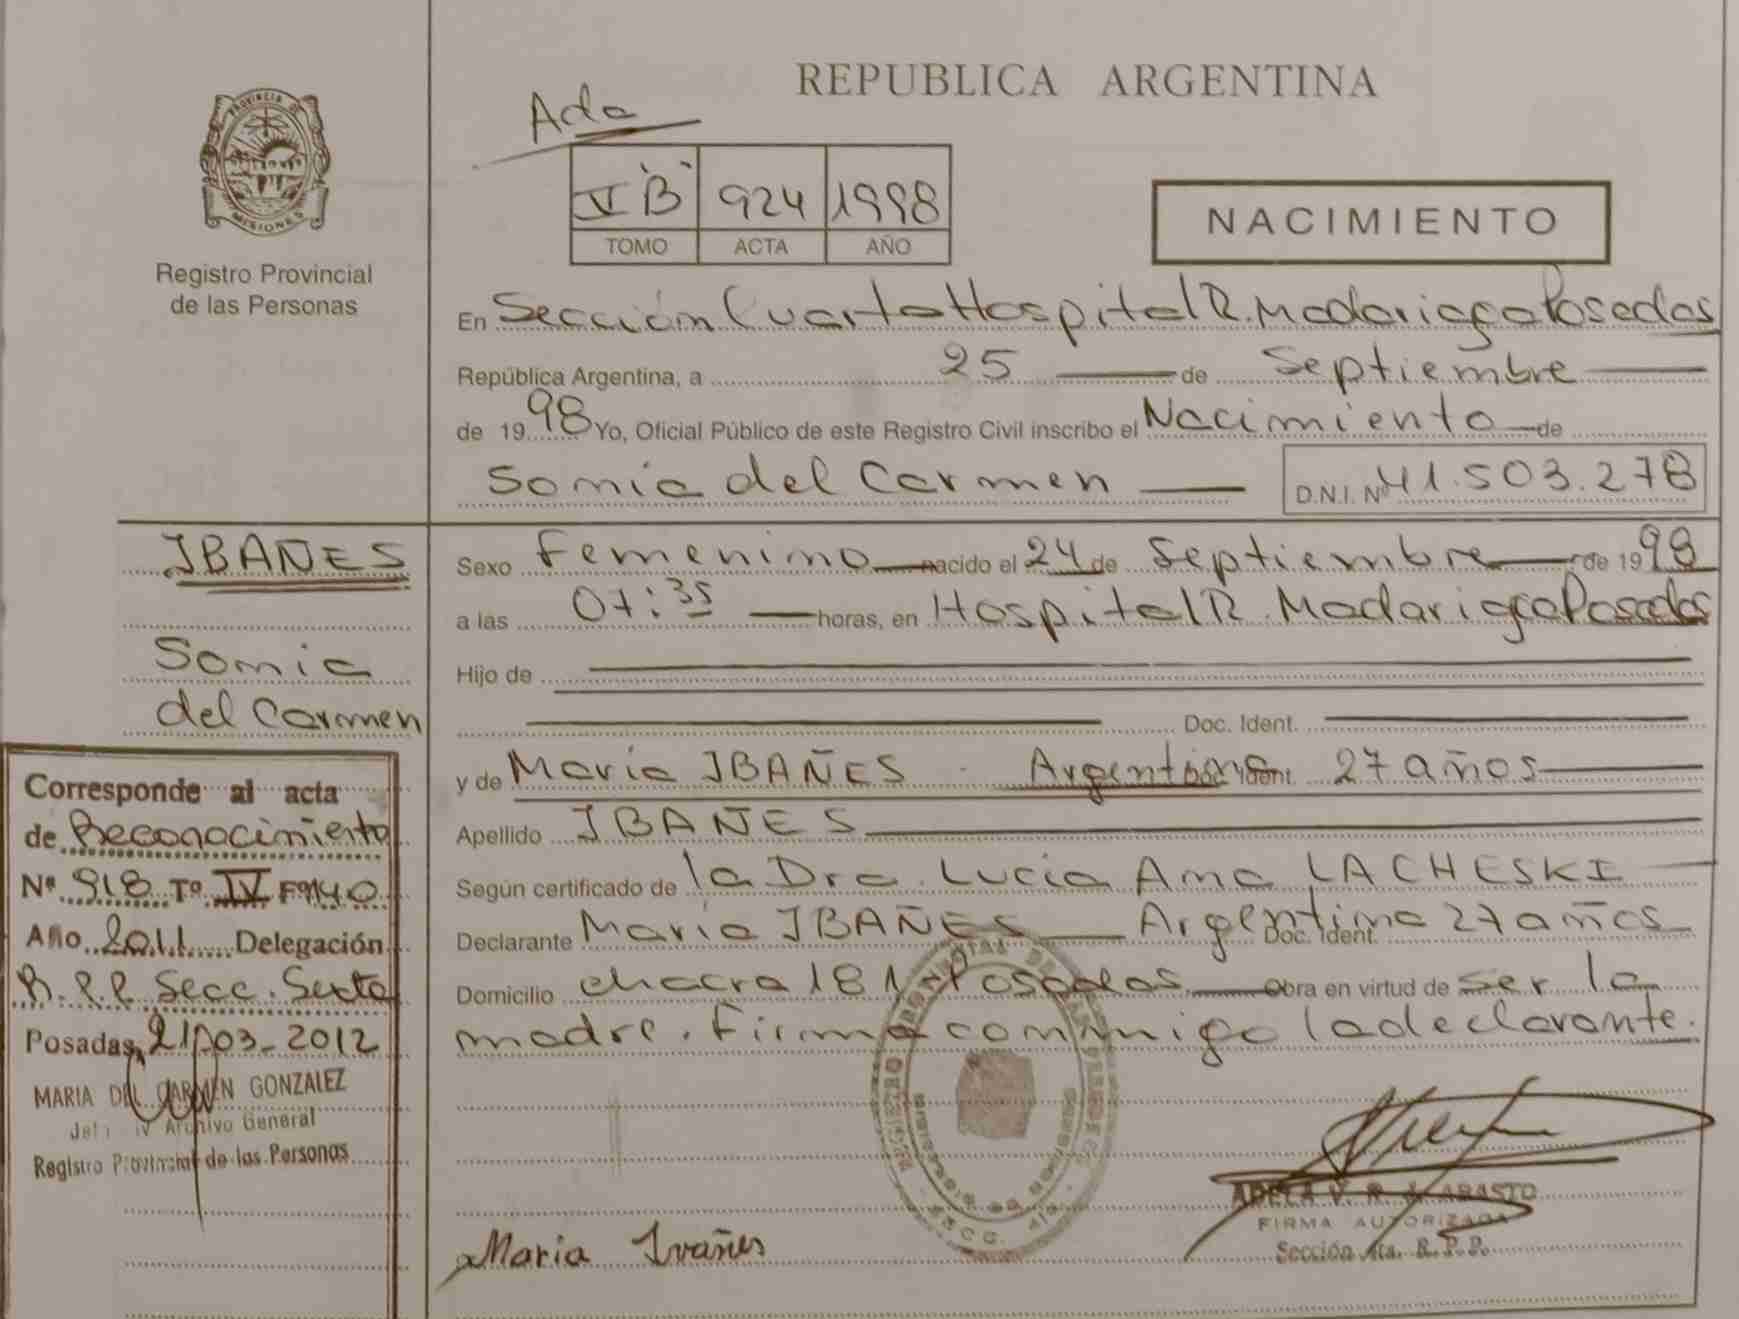 REPUBLICA ARGENTINA
Ada
PROVINCIA DE
MISIONES
V B 924 1998
TOMO ACTA AÑO
NACIMIENTO
Registro Provincial
de las Personas
En Sección Cuarta Hospital R. Madariaga Posadas
República Argentina, a 25 de Septiembre
de 1998 Yo, Oficial Público de este Registro Civil inscribo el Nacimiento de
Sonia del Carmen D.N.I. Nº 41.503.278
IBAÑES
Sonia
del Carmen
Sexo Femenino nacido el 24 de Septiembre de 1998
a las 07:35 horas, en Hospital R. Madariaga Posadas
Hijo de
Doc. Ident.
y de María IBAÑES Argentina Doc. Ident. 27 años
Apellido IBAÑES
Según certificado de la Dra. Lucía Ana LACHESKI
Declarante María IBAÑES Argentina Doc. Ident. 27 años
Domicilio chacra 181 Posadas obra en virtud de ser la
madre. Firma conmigo la declarante.
Corresponde al acta
de Reconocimiento
Nº 918 Tº IV Fº 140
Año 2011 Delegación
R.P.P. Secc. Sexta
Posadas, 21-03-2012
MARIA DEL CARMEN GONZALEZ
Archivo General
Registro Provincial de las Personas
REGISTRO PROVINCIAL DE LAS PERSONAS
María Ivañes
ADELA V. R. ABASTO
FIRMA AUTORIZADA
Sección 4ta. R.P.P.